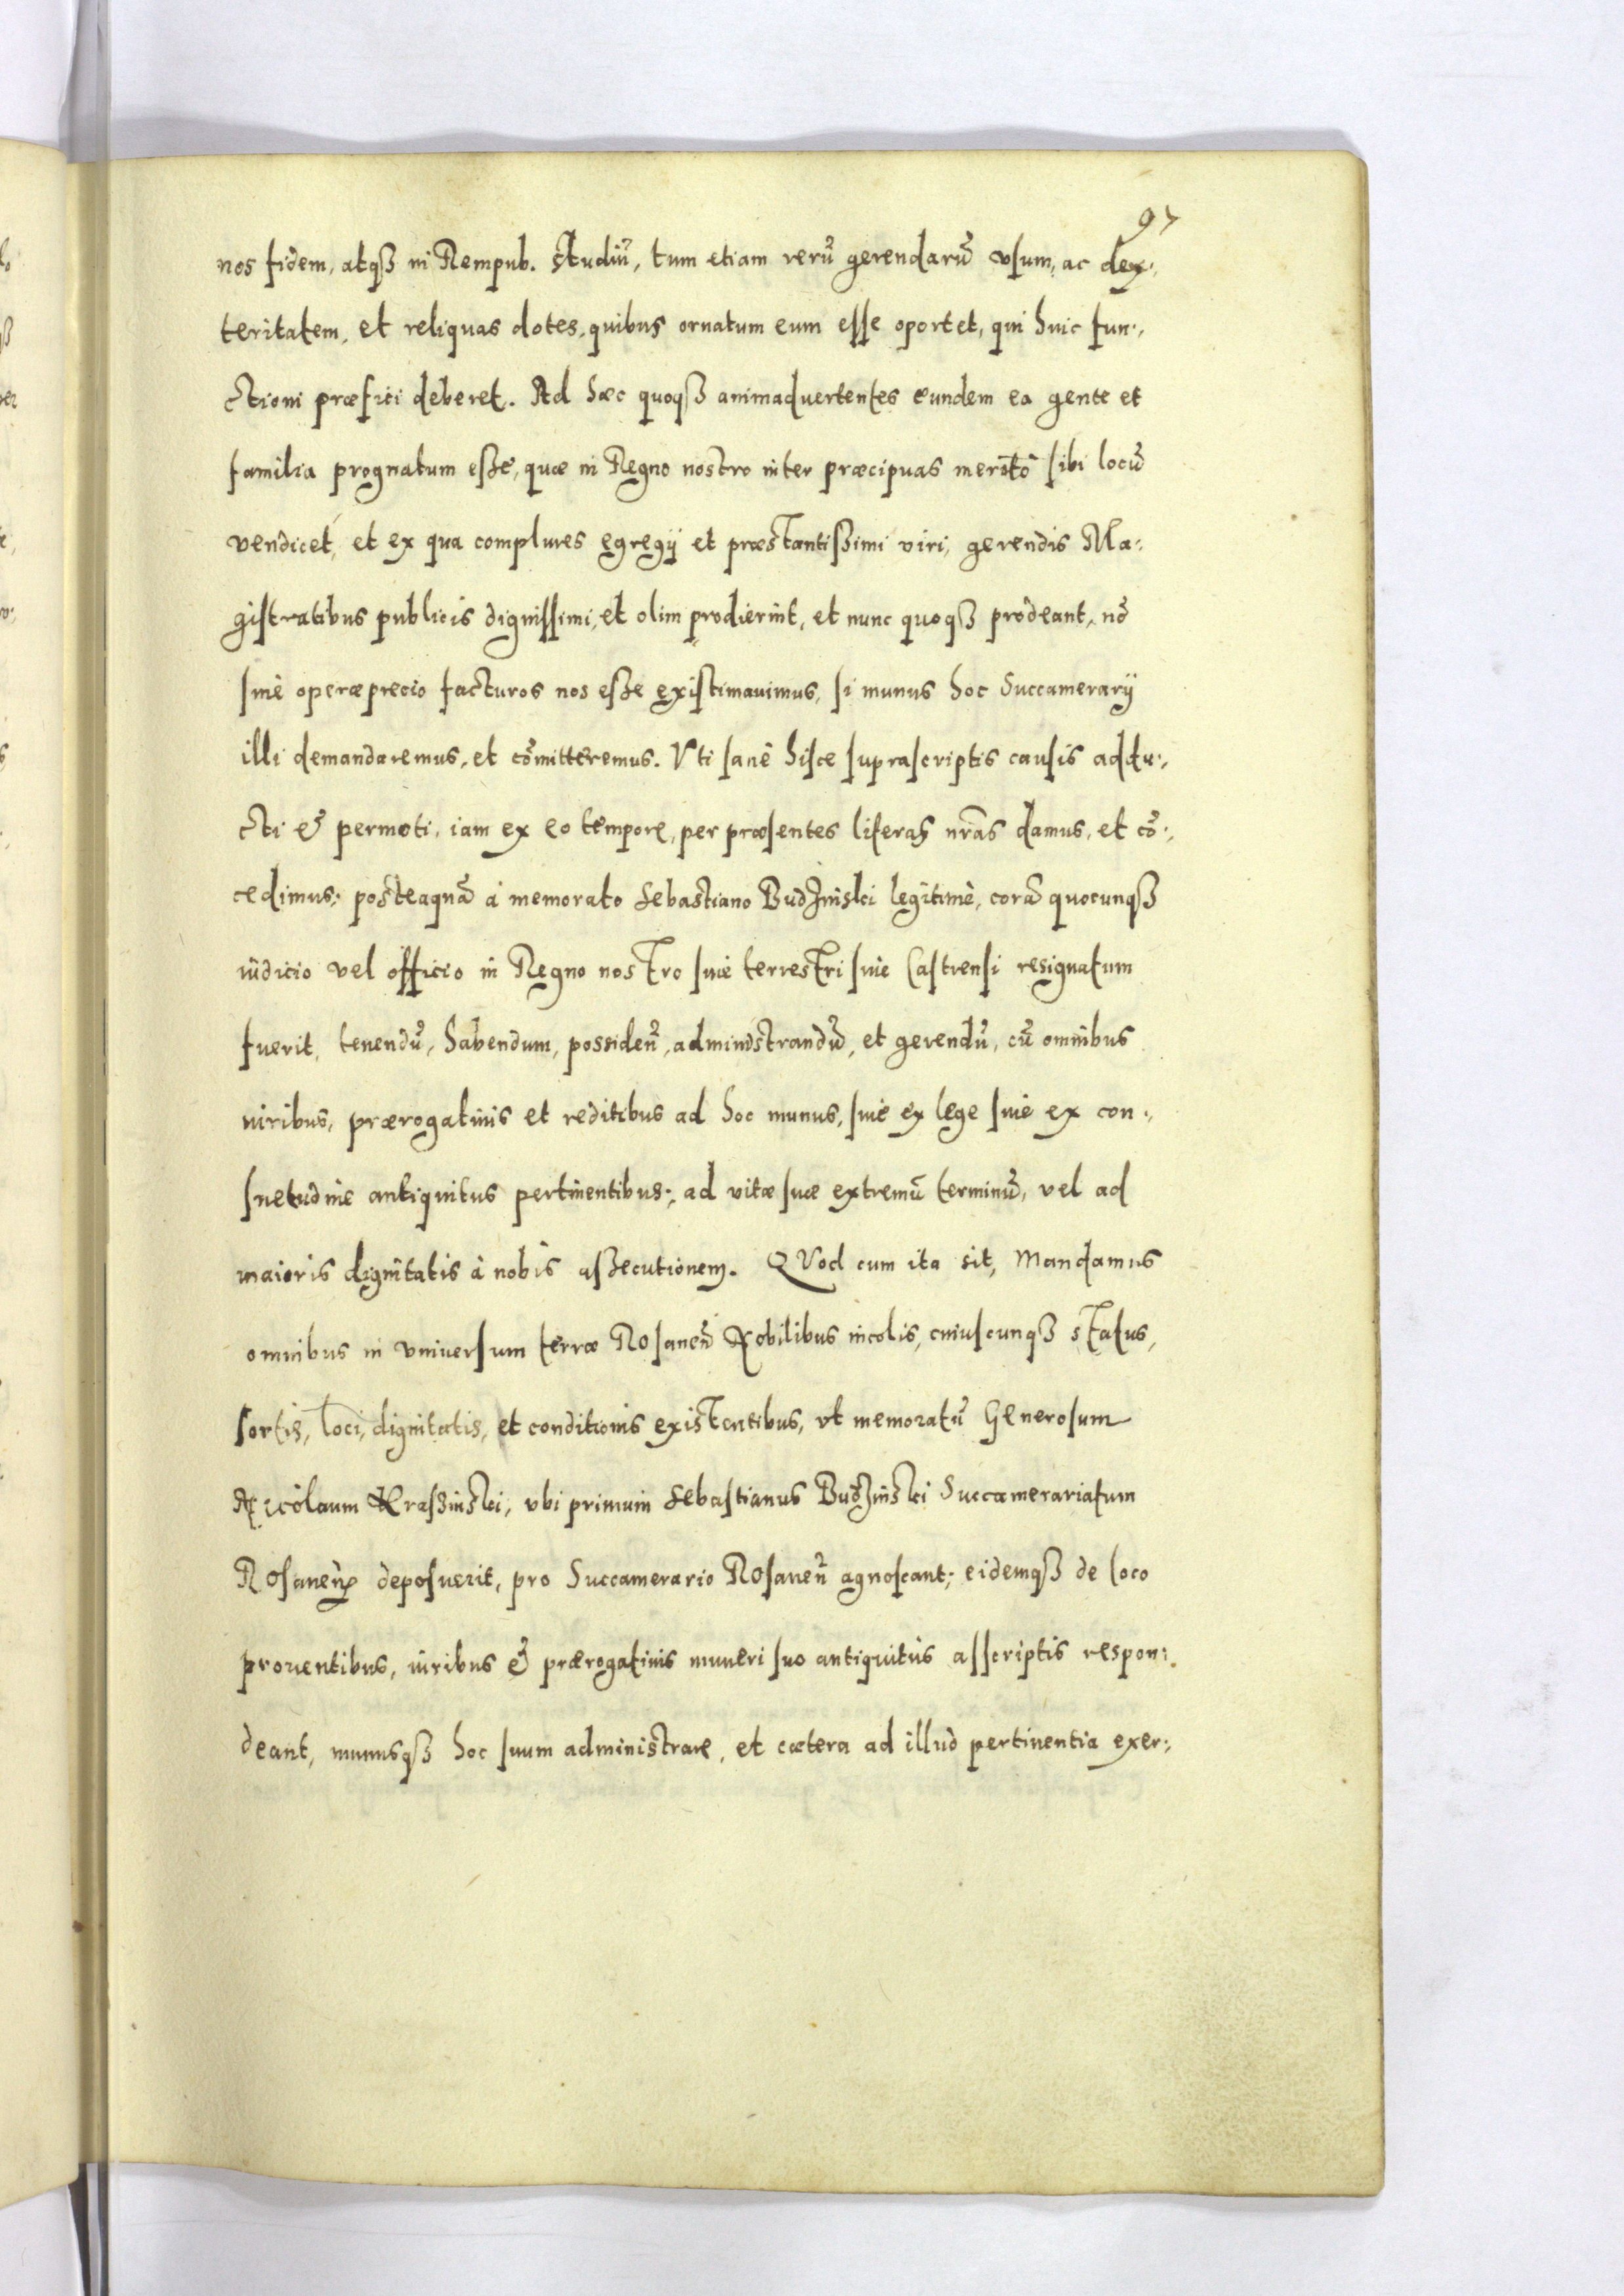 97
nos fidem, atqȝ in Rempub. studiū, tum etiam rerū gerendarū vsum, ac dex:,
teritatem, et reliquas dotes, quibus ornatum eum eſſe oportet, qui huic fun:,
ctioni præfici deberet. Ad hæc quoqȝ animaduertentes eundem ea gente et
familia prognatum eſse, quæ in Regno nostro inter præcipuas meritò ſibi locū
vendicet, et ex qua complures egregij et præstantißimi viri, gerendis Ma:
giſtratibus publicis digniſſimi, et olim prodierint, et nunc quoqȝ prodeant, nō
ſinè operæprecio facturos nos eſse exiſtimauimus, ſi munus hoc Succamerarij
illi demandaremus, et cōmitteremus. Vti ſanè hiſce ſupraſcriptis cauſis addu:,
cti & permoti, iam ex eo tempore, per præſentes literas nrās damus, et cō:,
cedimus: posteaquā à memorato Sebastiano Budzinski legitimè, corā quocunqȝ
iudicio vel officio in Regno nostro ſiuè terrestri ſiuè Caſtrenſi resignatum
fuerit, tenendū, habendum, possideñ, administrandū, et gerendū, cū omnibus
iuribus, prærogatiuis et reditibus ad hoc munus, ſiuè ex lege ſiuè ex con:,
ſuetudine antiquitus pertinentibus:, ad vitæ ſuæ extremū terminū, vel ad
maioris dignitatis à nobis aſsecutionem. QVod cum ita sit, Mandamus
omnibus in vniuerſum terræ Roſaneñ Nobilibus incolis, cuiuſcunqȝ status,
ſortis, loci, dignitatis, et conditionis existentibus, vt memoratū Generoſum
Nicolaum Kraſsinski, vbi primum Sebaſtianus Budzinski Succamerariatum
Roſaneñ depoſuerit, pro Succamerario Roſaneñ agnoſcant; eidemqȝ de loco
prouentibus, iuribus & prærogatiuis muneri ſuo antiquitùs aſſcriptis respon:
deant, munusqȝ hoc ſuum administrare, et cætera ad illud pertinentia exer:,